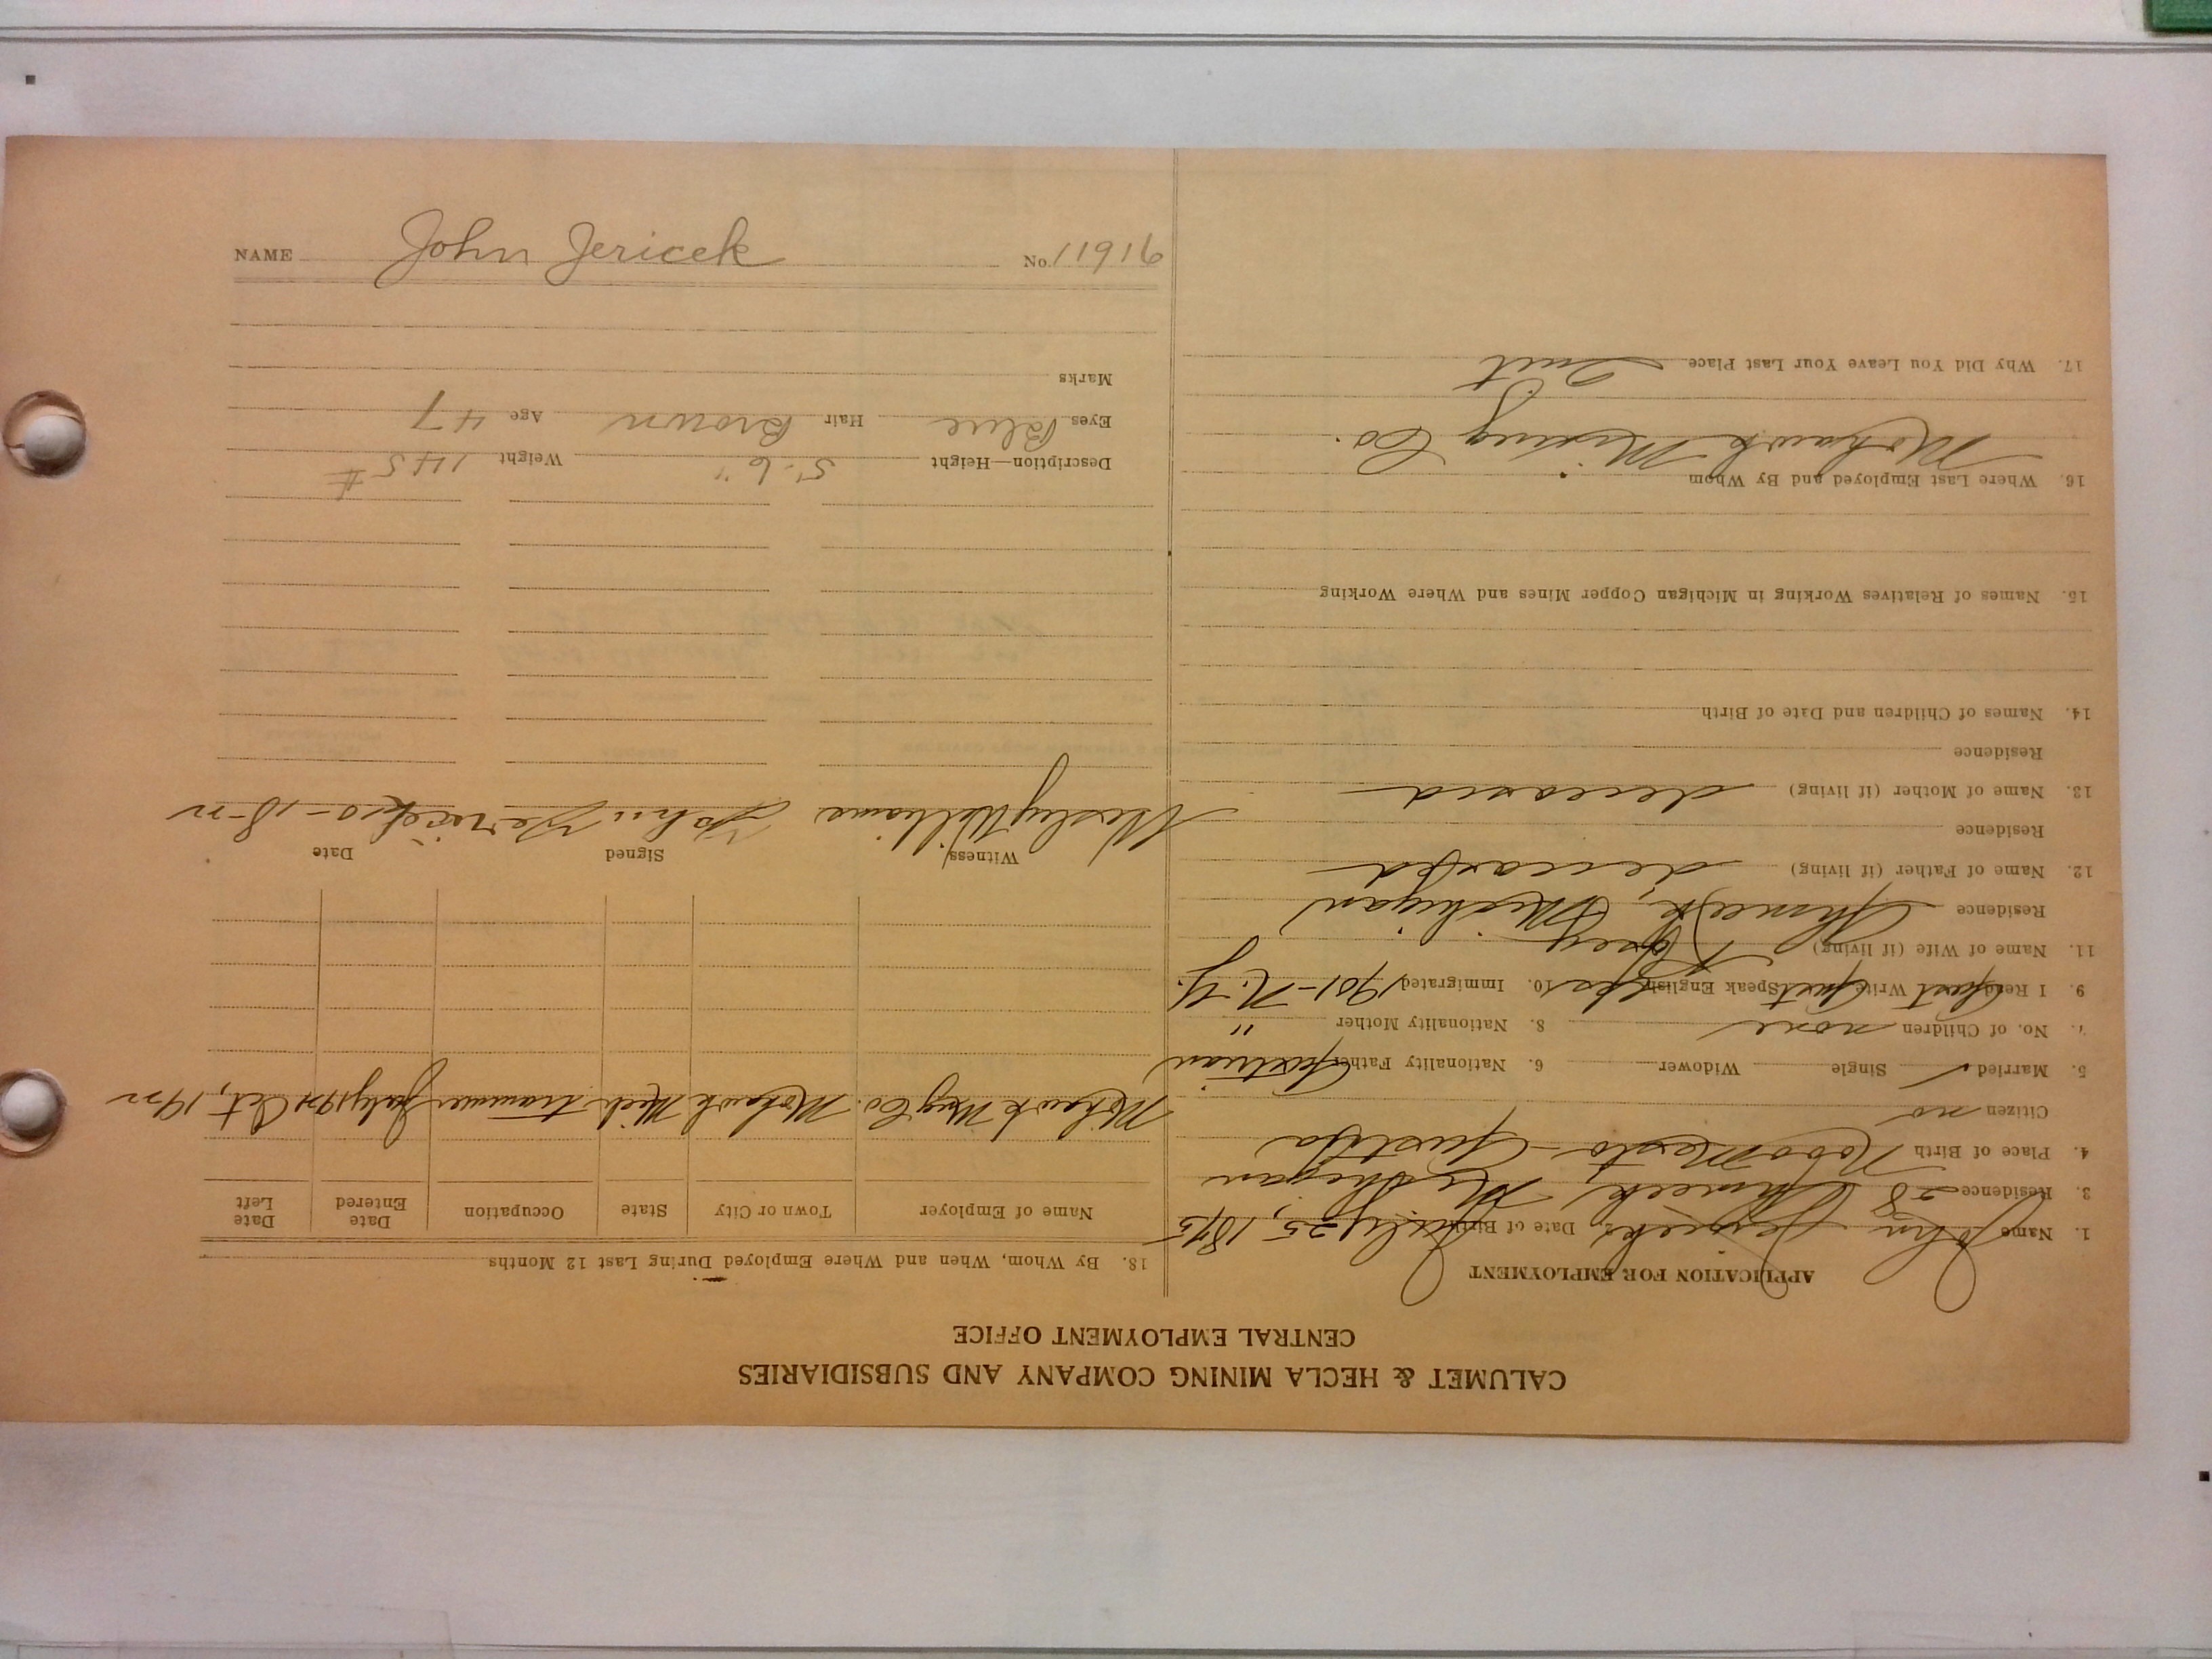 CALUMET & HECLA MINING COMPANY AND SUBSIDIARIES
CENTRAL EMPLOYMENT OFFICE
APPLICATION FOR EMPLOYMENT
1. Name John Jericek 2. Date of Birth July 25, 1875
3. Residence 58 Ahmeek, Michigan
4. Place of Birth Novo Mesto - Austria
Citizen no
5. Married ✓ Single Widower 6. Nationality Father Austrian
7. No. of Children none 8. Nationality Mother "
9. I Read Aust Write Aust Speak English yes 10. Immigrated 1901 - N.Y.
11. Name of Wife (if living)
Residence Ahmeek, Michigan
12. Name of Father (if living) deceased
Residence
13. Name of Mother (if living) deceased
Residence
14. Names of Children and Date of Birth
15. Names of Relatives Working in Michigan Copper Mines and Where Working
16. Where Last Employed and By Whom
Mohawk Mining Co.
17. Why Did You Leave Your Last Place Quit
18. By Whom, When and Where Employed During Last 12 Months
Name of Employer Town or City State Occupation Date Entered Date Left
Mohawk Mng Co. Mohawk Mich trammer July 1921 Oct, 1922
Witness Signed Date
Wesley Williams John Jericek 10-18-22
Description—Height 5'-6" Weight 145#
Eyes Blue Hair Brown Age 47
Marks
NAME John Jericek No. 11916